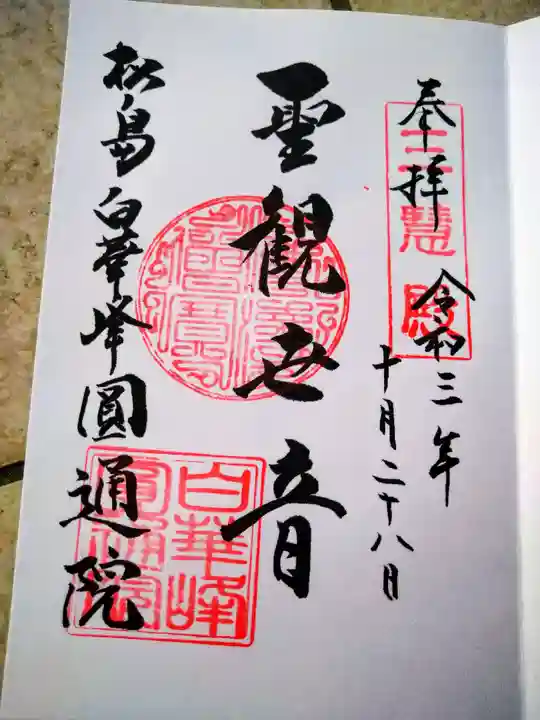 奉拝 令和三年
十月二十八日
三慧殿
聖観世音
松島白華峰圓通院
白華峰
圓通院